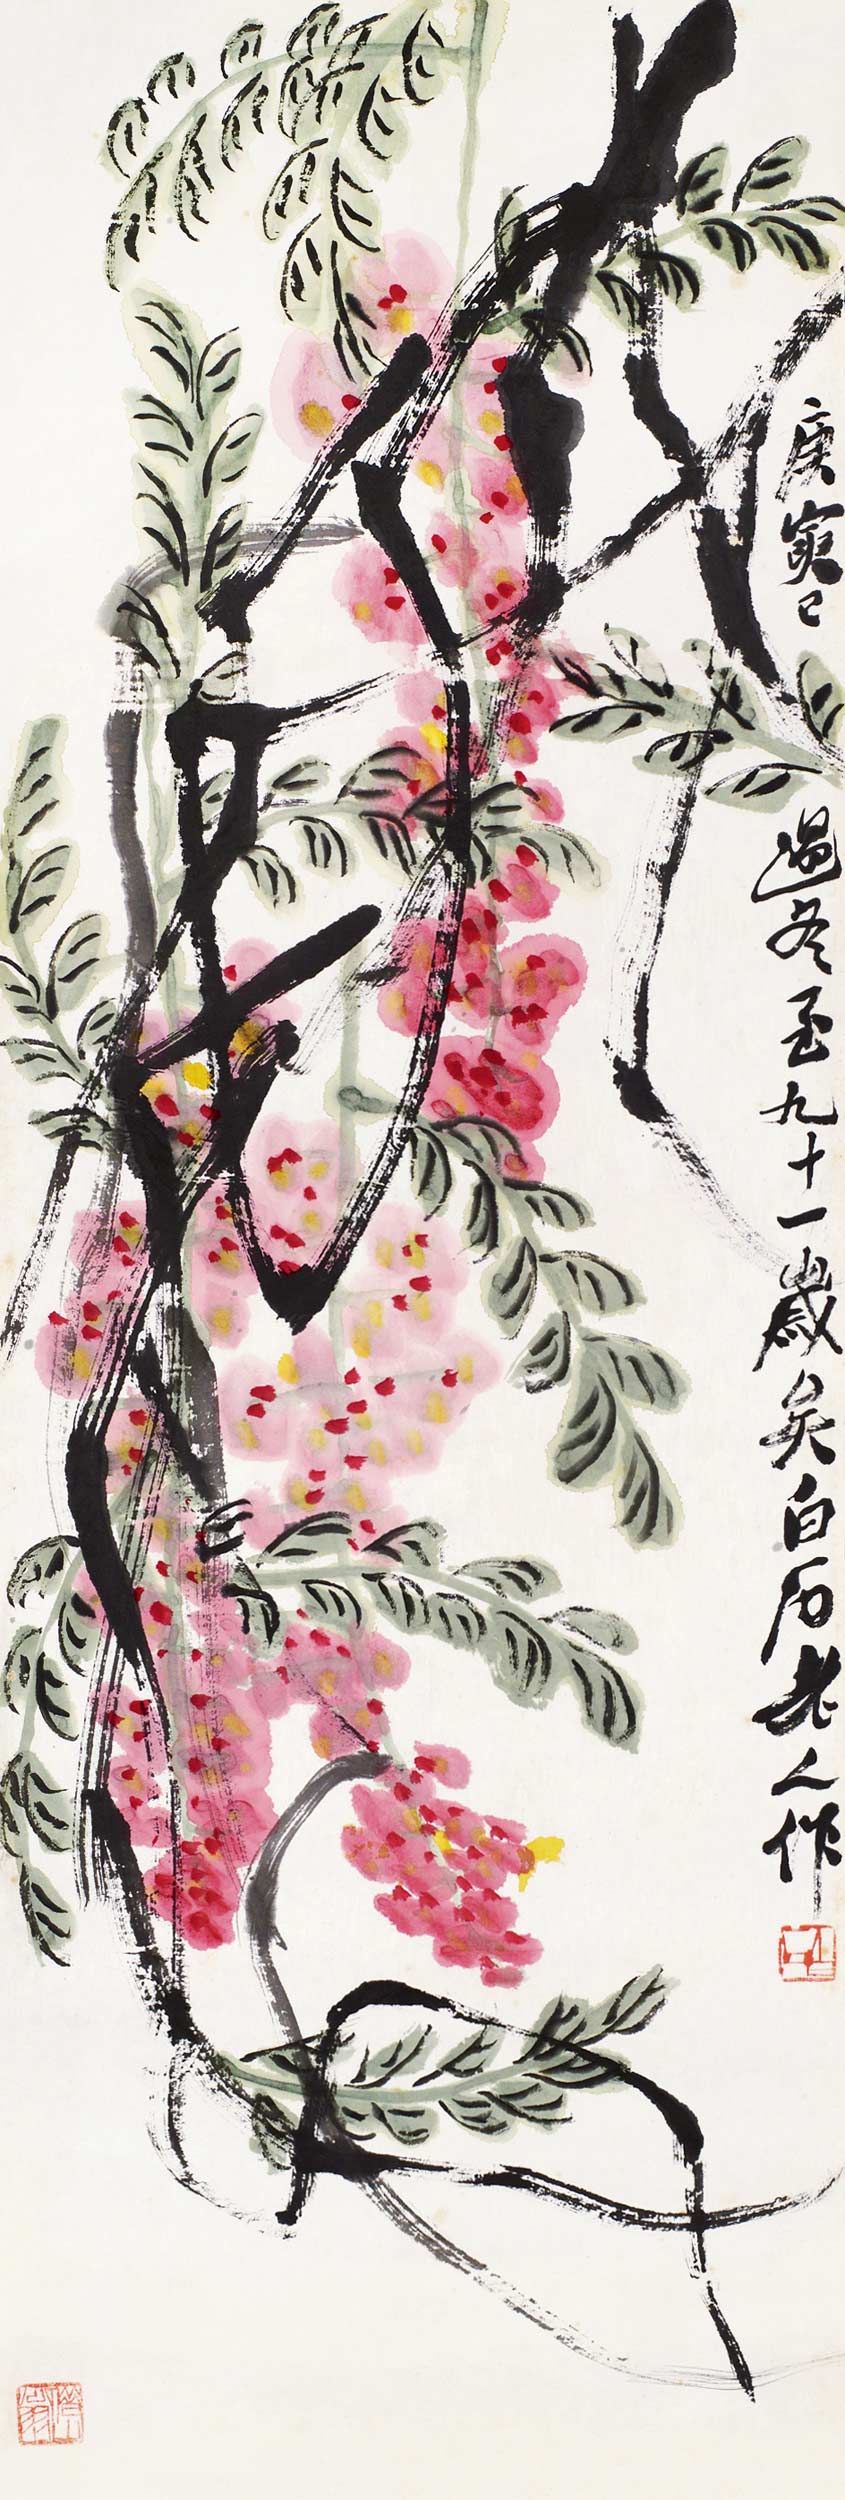 庚寅已過冬至九十一歲矣白石老人作